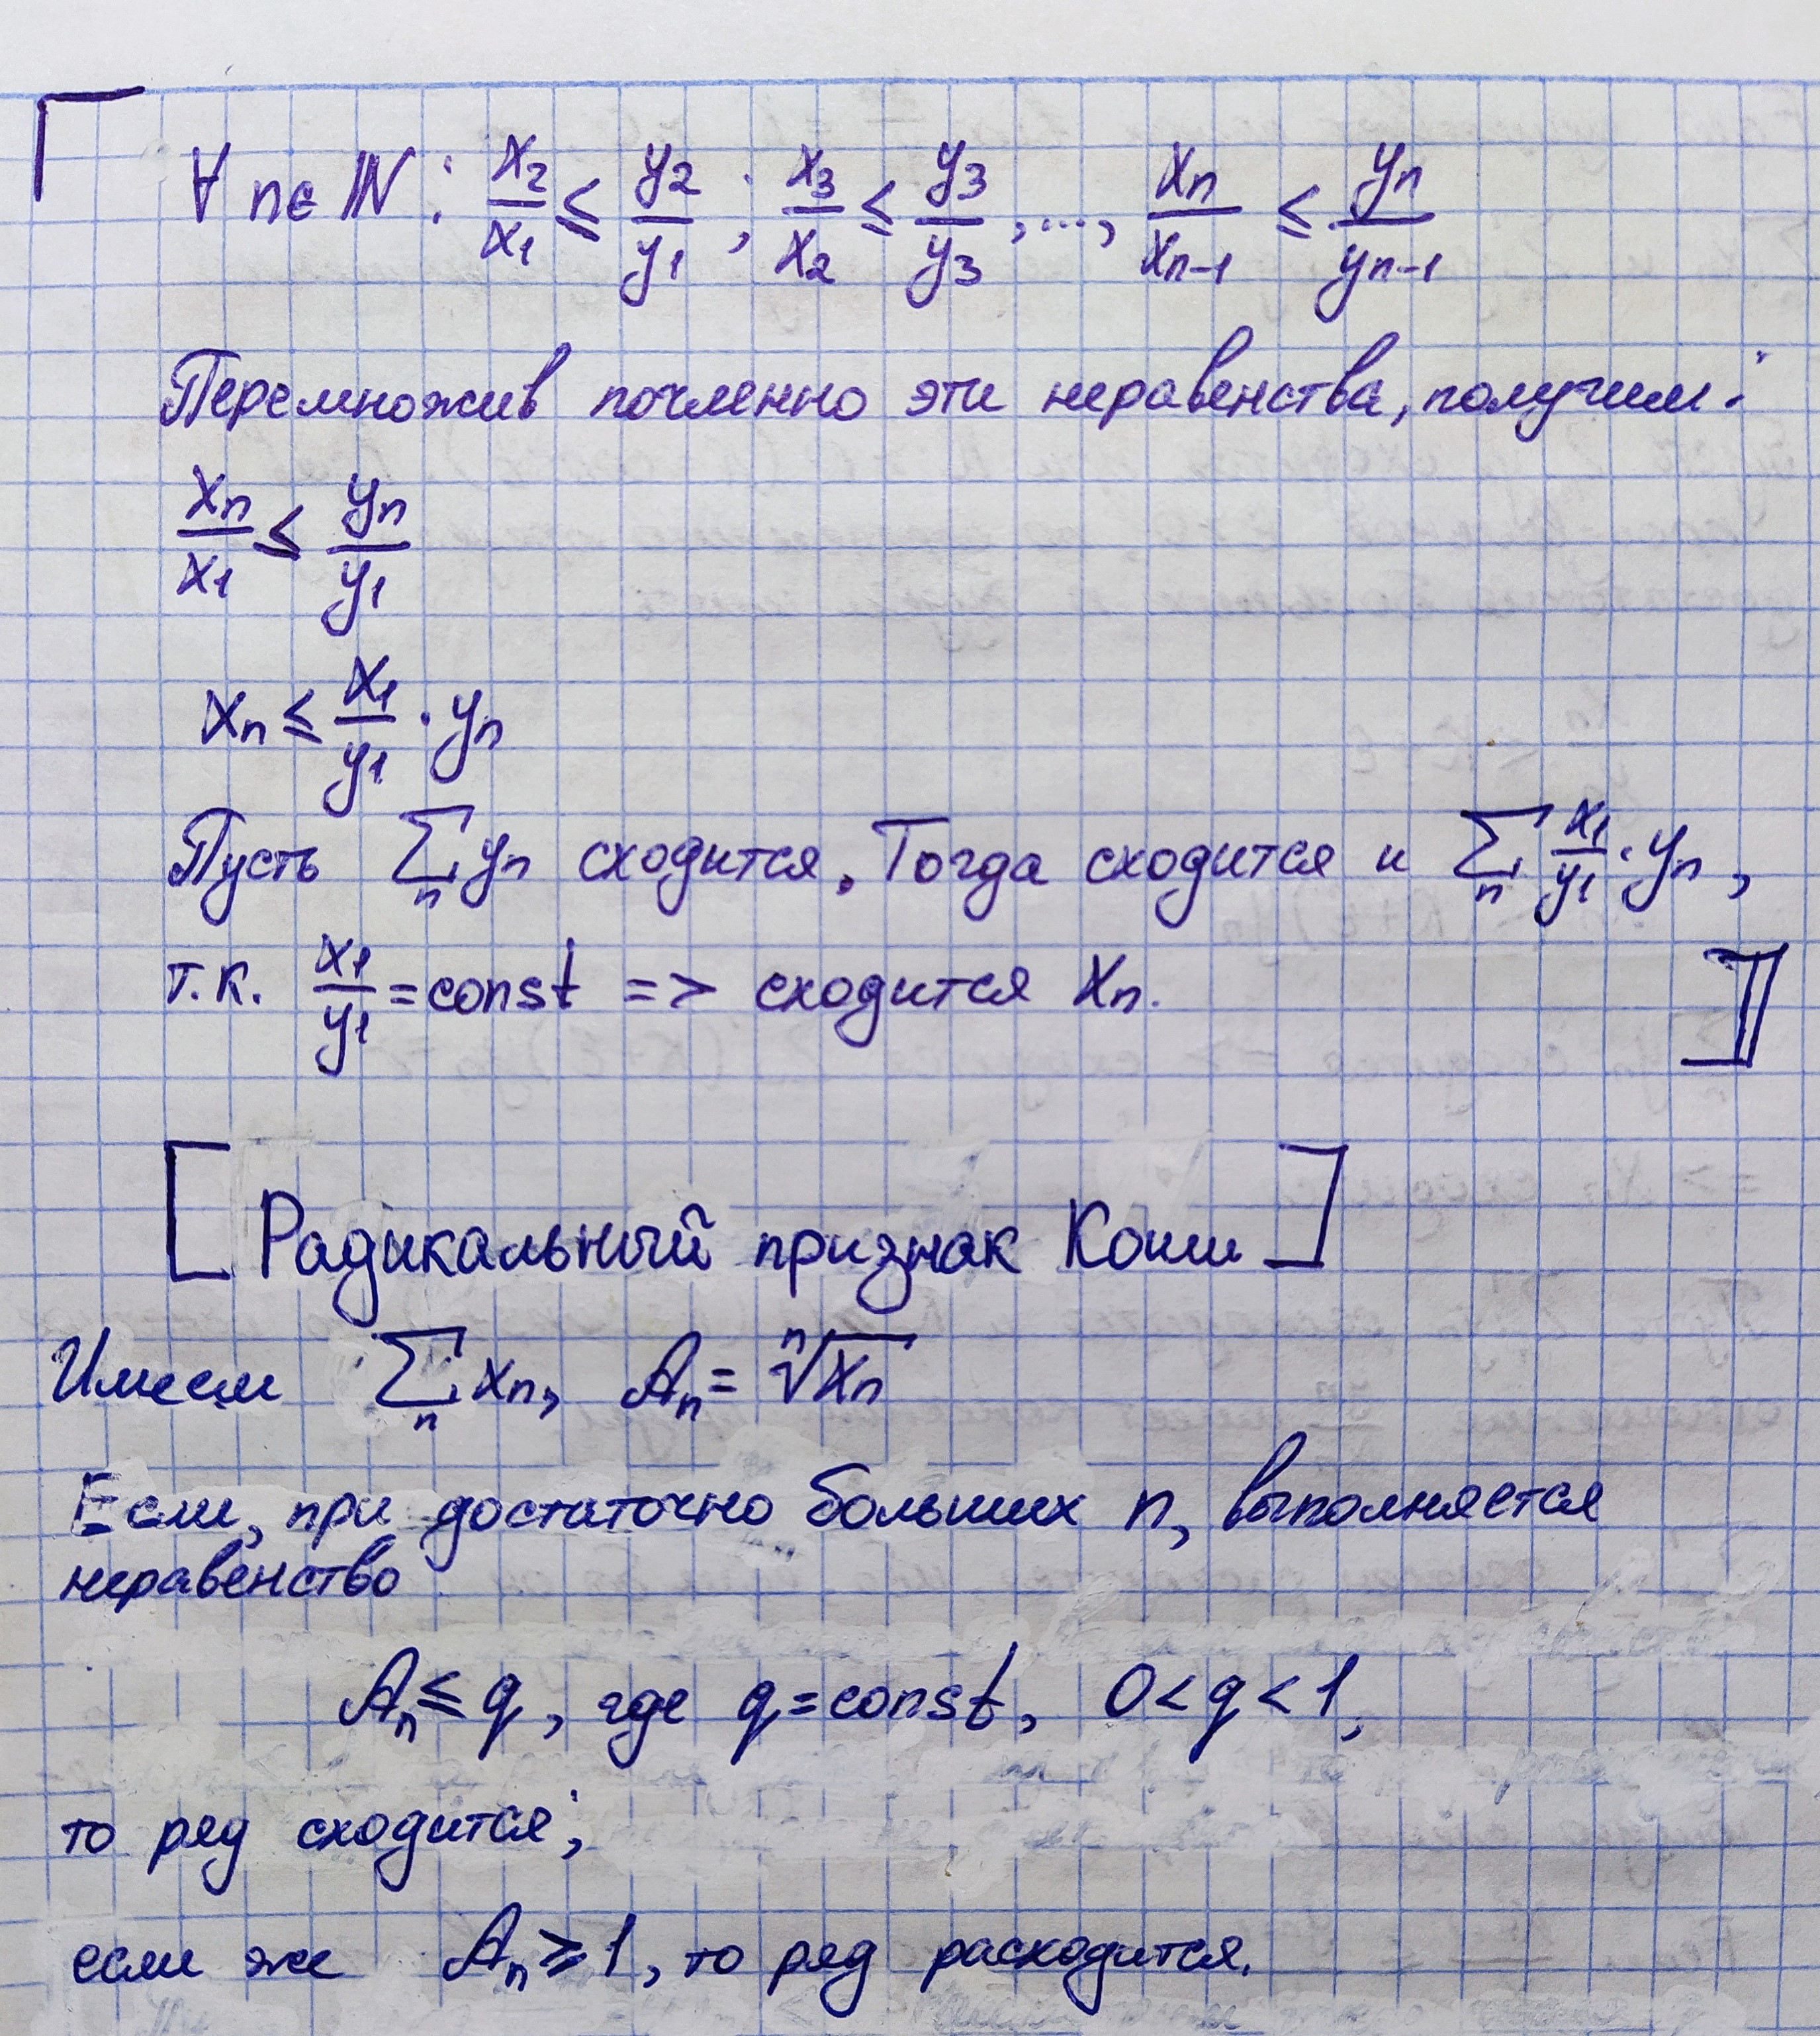 ∀ n ∈ ℕ: x₂/x₁ ≤ y₂/y₁; x₃/x₂ ≤ y₃/y₃, ..., xₙ/xₙ₋₁ ≤ yₙ/yₙ₋₁
Перемножив почленно эти неравенства, получим:
xₙ/x₁ ≤ yₙ/y₁
xₙ ≤ x₁/y₁ · yₙ
Пусть ∑ₙ yₙ сходится. Тогда сходится и ∑ₙ x₁/y₁ · yₙ,
т.к. x₁/y₁ = const => сходится xₙ.
[Радикальный признак Коши]
Имеем ∑ₙ xₙ, 𝒜ₙ = ⁿ√xₙ
Если, при достаточно больших n, выполняется
неравенство
𝒜ₙ ≤ q, где q = const, 0 < q < 1,
то ряд сходится;
если же 𝒜ₙ ≥ 1, то ряд расходится.